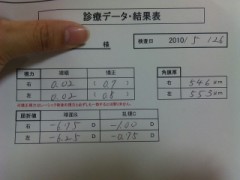 診療データ・結果表
様
検査日 2010/5/26
視力 裸眼 矯正 角膜厚
右 0.02 (0.7) 右 546 μm
左 0.02 (0.8) 左 553 μm
屈折値 球面度 乱視度
右 -6.75 D -1.00 D
左 -6.25 D -0.75 D